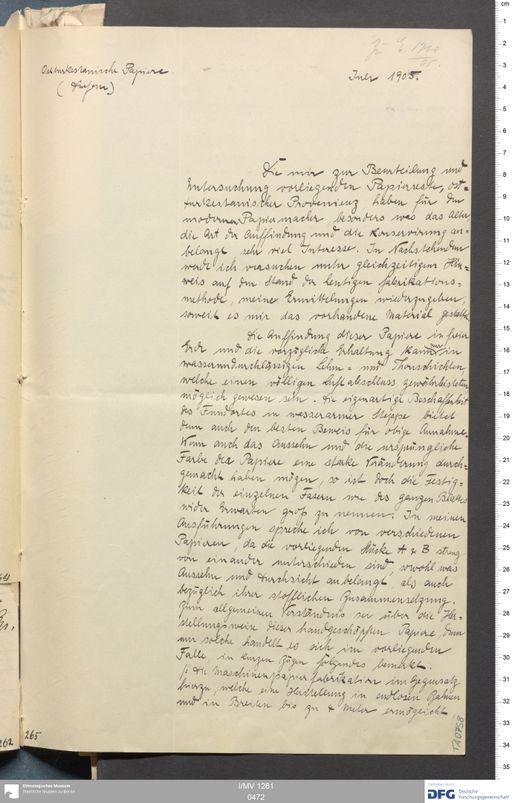 Zu E. 1740/05.
Ostturkestanische Papiere.
Juli 1905.
Die mir zur Beurteilung und
Untersuchung vorliegenden Papierreste, ost=
turkestanischer Provenienz haben für den
modernen Papiermacher, besonders was das Alter
die Art der Auffindung und die Konservirung an-
belangt sehr viel Interesse. In Nachstehendem
werde ich versuchen unter gleichzeitigem Hin-
weis auf den Stand der heutigen Fabrikations-
methode, meine Ermittelungen wiederzugeben,
soweit es mir das vorhandene Material gestattet.
Die Auffindung dieser Papiere in freier
Erde und die vorzügliche Erhaltung kann nur in
wasserundurchlässigen Lehm= und Thonschichten,
welche einen völligen Luftabschluss gewährleisteten
möglich gewesen sein. Die eigenartige Beschaffenheit
des Fundortes in wasserarmer Steppe bietet
denn auch den besten Beweis für obige Annahme.
Wenn auch das Aussehn und die ursprüngliche
Farbe der Papiere eine starke Veränderung durch-
gemacht haben mögen, so ist doch die Festig=
keit der einzelnen Fasern wie des ganzen Blattes
wider Erwarten groß zu nennen. In meinen
Ausführungen spreche ich von verschiedenen
Papieren, da die vorliegenden Stücke A & B streng
von einander unterschieden sind, sowohl was
Aussehn und Durchsicht anbelangt, als auch
bezüglich ihrer stofflichen Zusammensetzung.
Zum allgemeinen Verständnis sei über die Her-
stellungsweise dieser handgeschöpften Papiere, denn
um solche handelt es sich im vorliegenden
Falle in kurzen Zügen folgendes bemerkt.
Die Maschinenpapierfabrikation im Gegensatz
hierzu, welche eine Herstellung in endlosen Bahnen
und in Breiten bis zu 4 Meter ermöglicht
265
262
TA0758
I/MV 1261
0472
Ethnologisches Museum
Staatliche Museen zu Berlin
DFG
Deutsche
Forschungsgemeinschaft